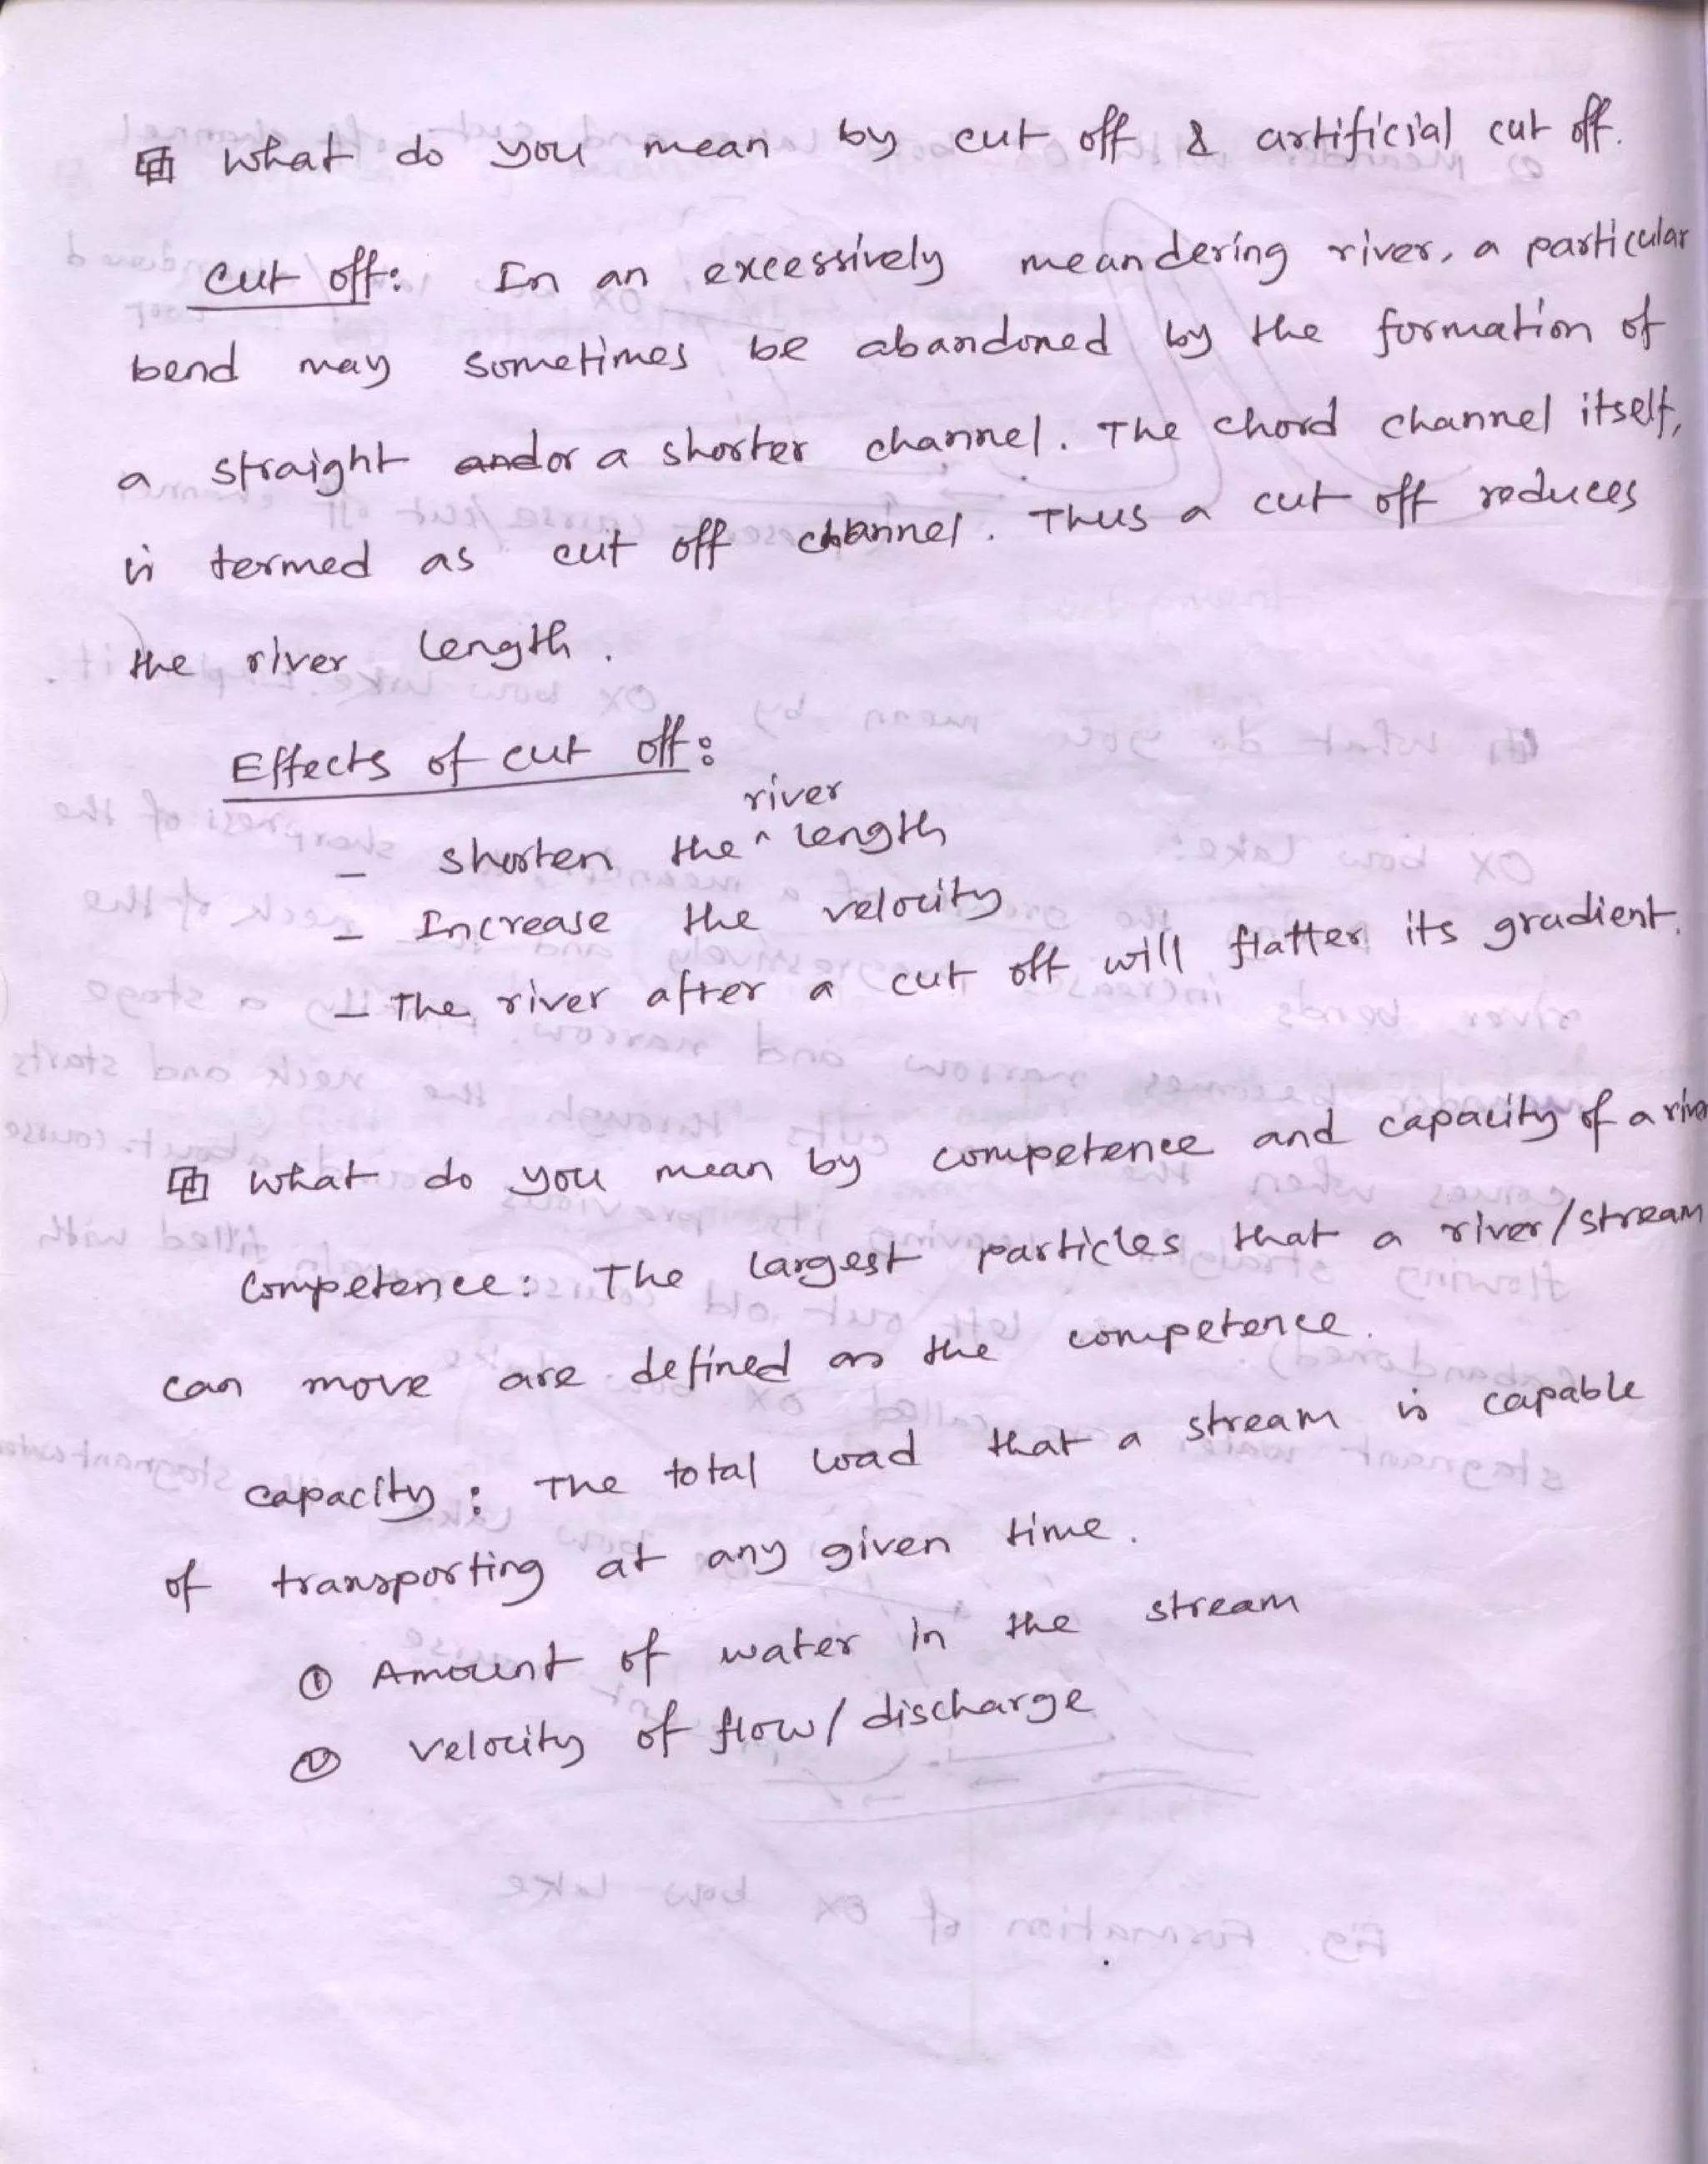 What do you mean by cut off & artificial cut off.
Cut off: In an excessively meandering river, a particular
bend may sometimes be abandoned by the formation of
a straight and or a shorter channel. The chord channel itself,
is termed as cut off channel. Thus a cut off reduces
the river length.
Effects of cut off:
river
– shorten the ^ length
– Increase the velocity
– The river after a cut off will flatter its gradient.
What do you mean by competence and capacity of a
Competence: The largest particles that a river/stream
can move are defined as the competence.
capacity: The total load that a stream is capable
of transporting at any given time.
① Amount of water in the stream
② velocity of flow/discharge